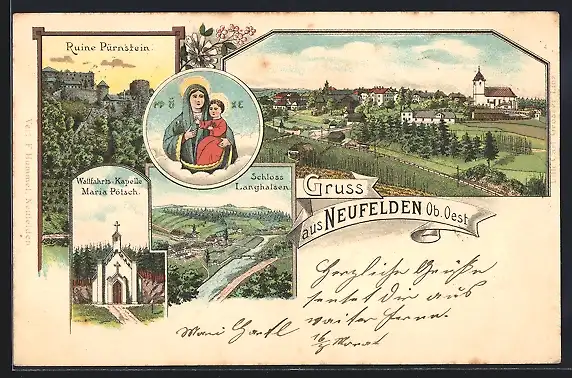 Ruine Pürnstein.
Wallfahrts-Kapelle
Maria Pötsch.
Schloss
Langhalsen
Gruss
aus NEUFELDEN Ob. Oest.
Herzliche Grüße
sendet dir aus
weiter Ferne.